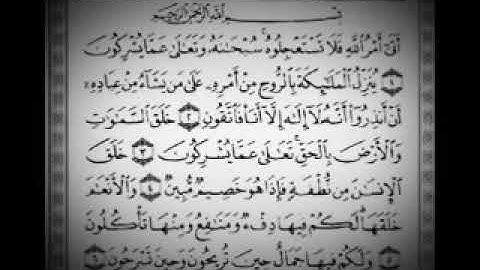 بِسْمِ ٱللَّهِ ٱلرَّحْمَٰنِ ٱلرَّحِيمِ
أَتَىٰٓ أَمْرُ ٱللَّهِ فَلَا تَسْتَعْجِلُوهُ ۚ سُبْحَٰنَهُۥ وَتَعَٰلَىٰ عَمَّا يُشْرِكُونَ
١ يُنَزِّلُ ٱلْمَلَٰٓئِكَةَ بِٱلرُّوحِ مِنْ أَمْرِهِۦ عَلَىٰ مَن يَشَآءُ مِنْ عِبَادِهِۦٓ
أَنْ أَنذِرُوٓا۟ أَنَّهُۥ لَآ إِلَٰهَ إِلَّآ أَنَا۠ فَٱتَّقُونِ ٢ خَلَقَ ٱلسَّمَٰوَٰتِ
وَٱلْأَرْضَ بِٱلْحَقِّ ۚ تَعَٰلَىٰ عَمَّا يُشْرِكُونَ ٣ خَلَقَ
ٱلْإِنسَٰنَ مِن نُّطْفَةٍ فَإِذَا هُوَ خَصِيمٌ مُّبِينٌ ٤ وَٱلْأَنْعَٰمَ
خَلَقَهَا ۗ لَكُمْ فِيهَا دِفْءٌ وَمَنَٰفِعُ وَمِنْهَا تَأْكُلُونَ
٥ وَلَكُمْ فِيهَا جَمَالٌ حِينَ تُرِيحُونَ وَحِينَ تَسْرَحُونَ ٦